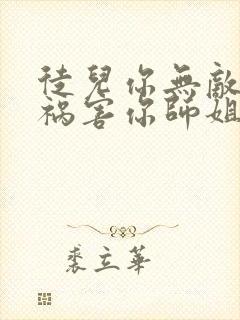 徒兒你無敵
禍害你師姐
裘立華